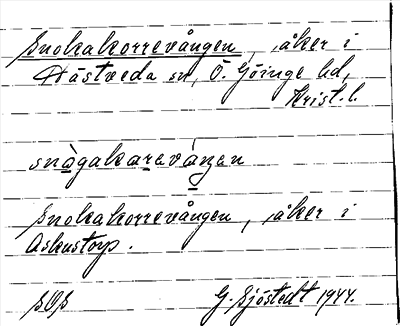 Snokakorrevången, åker i
Hästveda sn, Ö. Göinge hd,
Krist. l.
snågakarevánen
Snokakorrevången, åker i
Askestorp.
SOS G. Sjöstedt 1944.